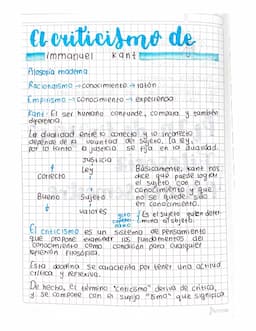 El criticismo de
Immanuel Kant
Filosofía moderna
Racionalismo → conocimiento → razón
Empirismo → conocimiento → experiencia
Kant: El ser humano confunde, compara y también
diferencia.
La dualidad entre lo correcto y lo incorrecto
depende de la voluntad del sujeto, la ley,
por lo tanto la justicia se fija en la dualidad.
justicia
↑
Ley
Correcto
Bueno
Sujeto
↓
valores
Básicamente, Kant nos
dice que puede lograr
el sujeto con el
conocimiento y que
no se quede sólo
en conocimiento.
Es el sujeto quien deter-
mina al objeto.
El criticismo es un sistema de pensamiento
que propone examinar los fundamentos del
conocimiento como condición para cualquier
reflexión filosófica.
Esta doctrina se caracteriza por tener una actitud
crítica y reflexiva.
De hecho, el término "criticismo" deriva de crítica,
y se compone con el sufijo "ismo" que significa